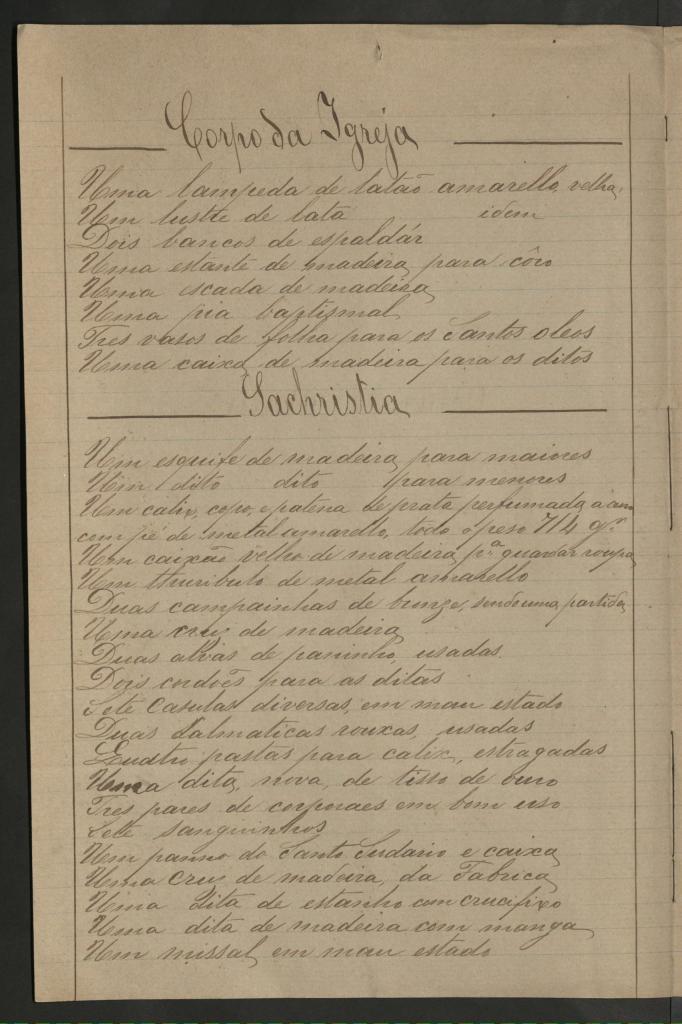 Corpo da Igreja
Uma lampeda de latão amarello, velha,
Um lustre de lata idem
Dois bancos de espaldár
Uma estante de madeira, para côro
Uma escada de madeira
Uma pia baptismal
Tres vasos de folha para os Santos oleos
Uma caixa de madeira para os ditos
Sachristia
Um esquife de madeira, para maiores
Um dito dito para menores
Um calix, copo, e patena de prata perfumada a
com pé de metal amarello, todo o peso 714 gr.
Um caixão velho de madeira, pª guardar roupa
Um thuribulo de metal amarello
Duas campainhas de bunze, sendo uma partida
Uma cruz de madeira
Duas alvas de paninho, usadas.
Dois cordões para as ditas
Sete casulas diversas, em mau estado
Duas Dalmaticas rouxas, usadas
Quatro pastas para calix, estragadas
Uma dita, nova, de tisso de ouro
Tres pares de corporaes em bom uso
Sete sanguinhos
Um panno do Santo Sudario e caixa
Uma cruz de madeira, da Fabrica
Uma dita de estanho com crucifixo
Uma dita de madeira com manga
Um missal, em mau estado